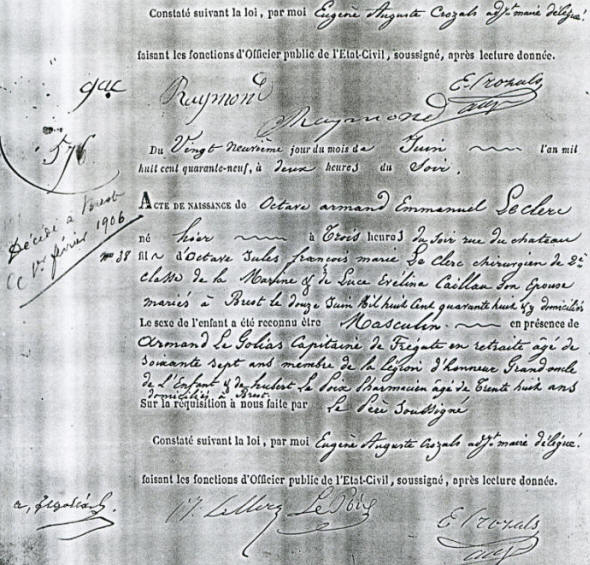 Constaté suivant la loi, par moi Eugène Auguste Crozals adjt maire délégué.
faisant les fonctions d'Officier public de l'Etat-Civil, soussigné, après lecture donnée.
Raymond E. Crozals
Raymond adjt
576
Du Vingt Neuvième jour du mois de Juin l'an mil
huit cent quarante-neuf, à deux heures du Soir.
ACTE DE NAISSANCE de Octave armand Emmanuel Leclerc
né hier à Trois heures du soir rue du chateau
n° 38 fils d'Octave Jules françois marie Le Clerc chirurgien de 2e
classe de la Marine & de Luce Evélina Caëllau son Epouse
mariés à Brest le douze Juin Mil huit Cent quarante huit & y domiciliés
Le sexe de l'enfant a été reconnu être Masculin. en présence de
armand Le Golias Capitaine de Frégate en retraite âgé de
soixante sept ans membre de la légion d'honneur Grand oncle
de L'Enfant & de hubert Le Poix Pharmacien âgé de Trente huit ans
domiciliés à Brest.
Sur la réquisition à nous faite par Le Père Soussigné
Constaté suivant la loi, par moi Eugène Auguste Crozals adjt maire délégué.
faisant les fonctions d'Officier public de l'Etat-Civil, soussigné, après lecture donnée.
Le Clerc E. Crozals
adjt
Décédé à Brest
le 1er février 1906